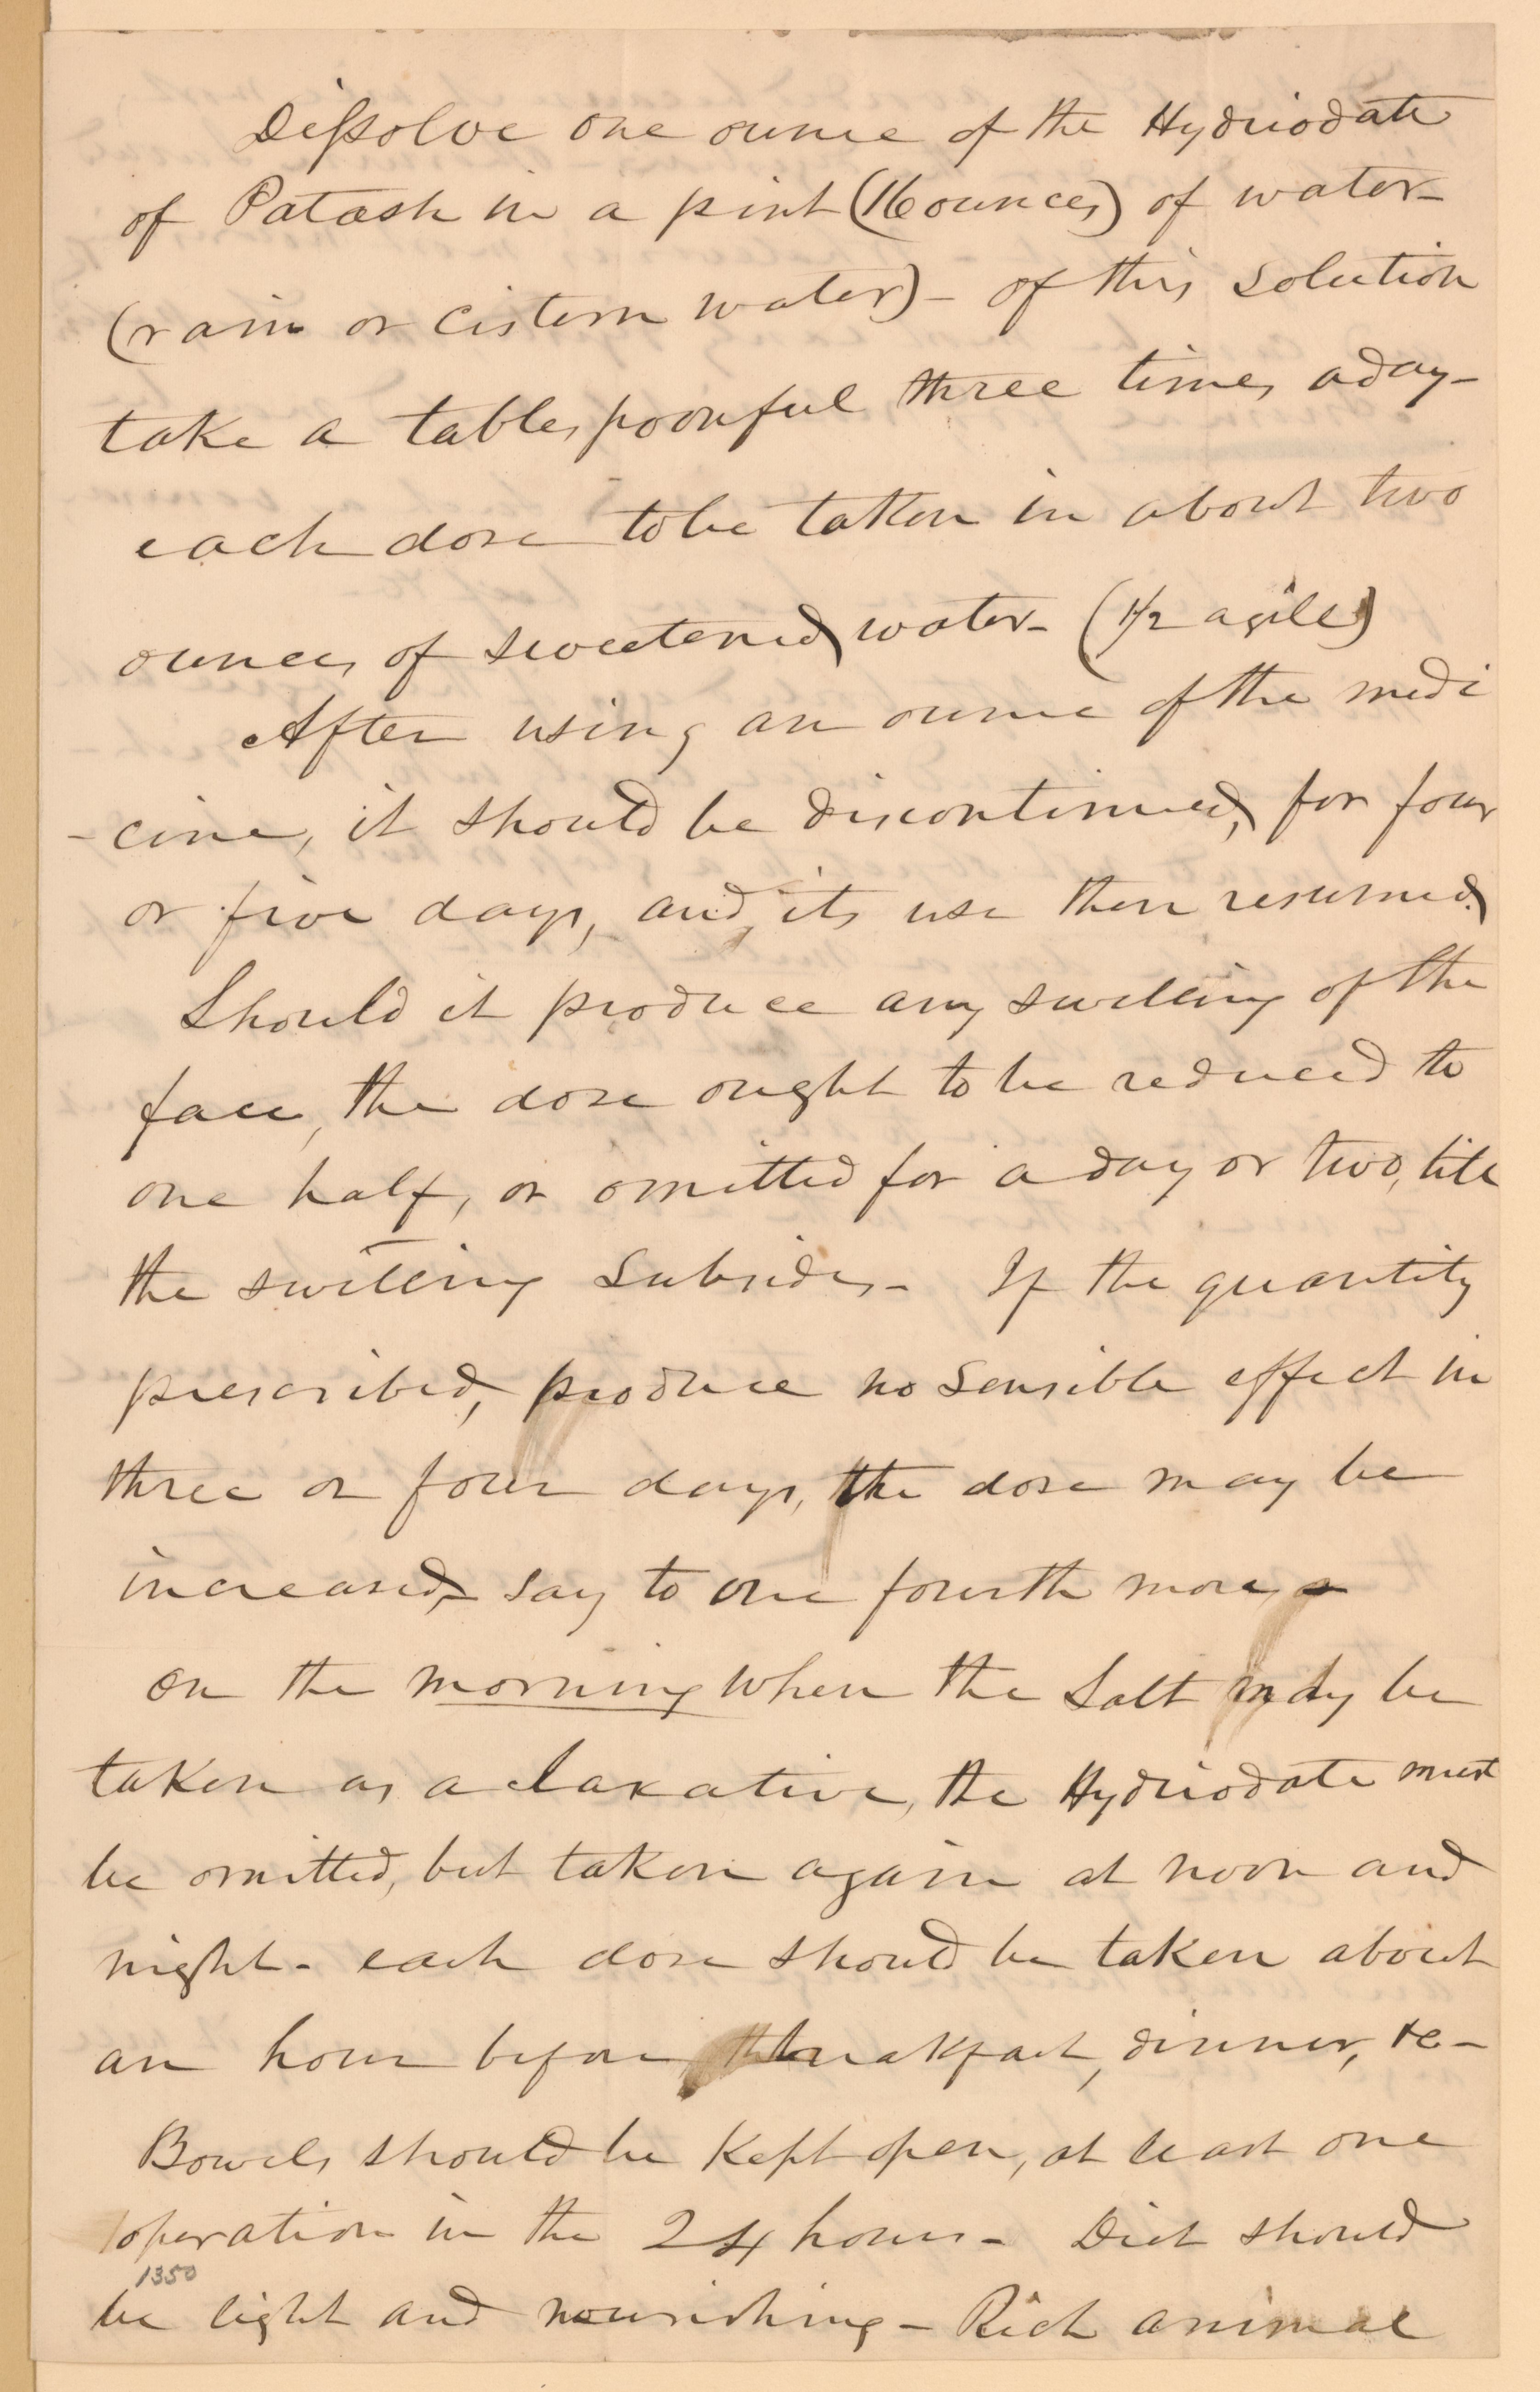 Dissolve one ounce of the Hydriodate
of Patash in a pint (16 ounces) of water-
(rain or cistern water) - of this solution
take a tablespoonful three times a day-
each dose to be taken in about two
ounces of sweetened water- (1/2 a gill)
After using an ounce of the medi
-cine, it should be discontinued, for four
or five days, and its use then resumed.
Should it produce any swelling of the
face, the dose ought to be reduced to
one half, or omitted for a day or two, till
the swelling subsides- If the quantity
prescribed, produce no sensible effect in
three or four days, the dose may be
increased, say to one fourth more,
on the morning when the Salt may be
taken as a laxative, the Hydriodate must
be omitted, but taken again at noon and
night- each dose should be taken about
an hour before breakfast, dinner, &c-
Bowels should be Kept open, at least one
operation in the 24 hours- Diet should
1350
be light and nourishing - Rich animal